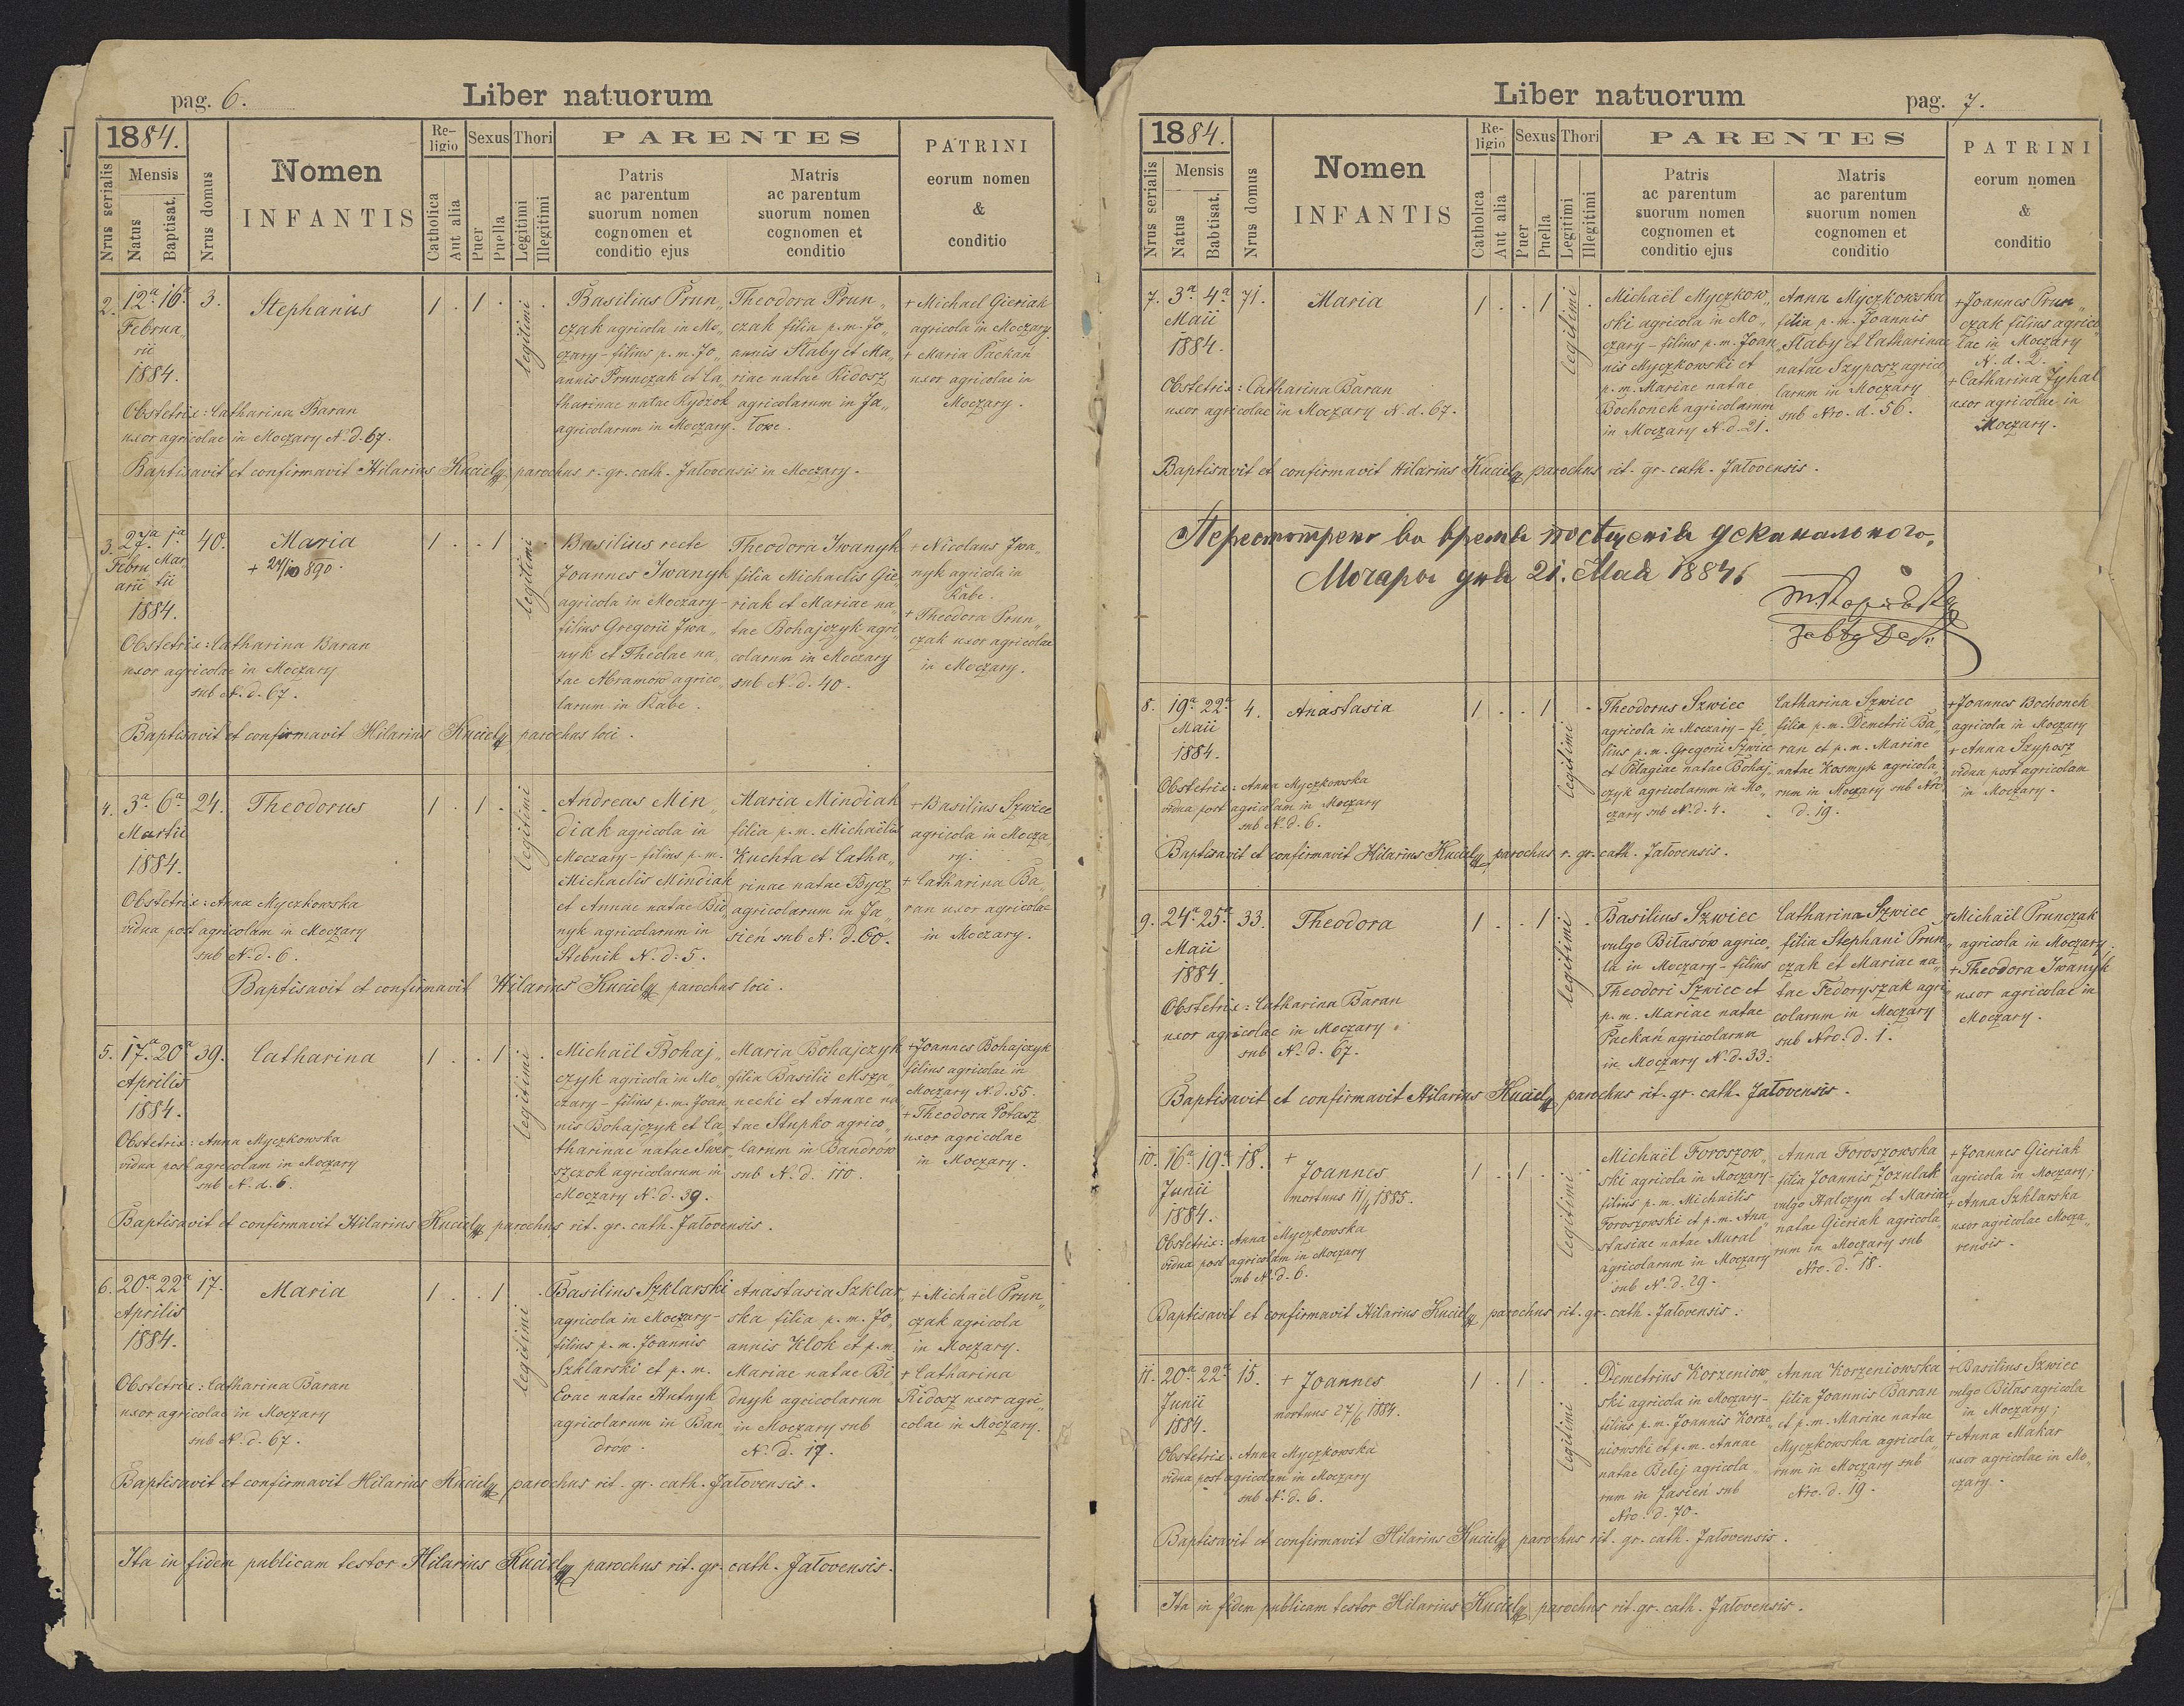 pag. 6.
Liber natuorum
1884.
Nrus serialis
Mensis
Natus
Baptisat.
Nrus domus
Nomen
INFANTIS
Re-
ligio
Catholica
Aut alia
Sexus
Puer
Puella
Thori
Legitimi
Illegitimi
PARENTES
Patris
ac parentum
suorum nomen
cognomen et
conditio ejus
Matris
ac parentum
suorum nomen
cognomen et
conditio
PATRINI
eorum nomen
&
conditio
2. 12a 16a 3. Stephanus 1 . 1 . legitimi
Februa„
rii
1884.
Obstetrix: Catharina Baran
uxor agricolae in Moczary N. d. 67.
Basilius Prun„
czak agricola in Mo„
czary – filius p. m. Jo„
annis Prunczak et Ca„
tharinae natae Kydzok
agricolarum in Moczary.
Theodora Prun„
czak filia p. m. Jo„
annis Staby et Ma„
riae natae Ridosz
agricolarum in Ja„
łowe.
+ Michael Gieriak
agricola in Moczary.
+ Maria Packań
uxor agricolae in
Moczary.
Baptisavit et confirmavit Hilarius Kuciely parochus r. gr. cath. Jałovensis in Moczary.
3. 27a 1a 40. Maria 1 . . 1 legitimi
Febru
arii
Mar
tii
+ 27/10 890.
1884.
Obstetrix: Catharina Baran
uxor agricolae in Moczary
sub N. d. 67.
Basilius recte
Joannes Iwanyk
agricola in Moczary –
filius Gregorii Iwa„
nyk et Theclae na„
tae Abramów agrico„
larum in Rabe.
Theodora Iwanyk
filia Michaelis Gie„
riak et Mariae na„
tae Bohajczyk agri„
colarum in Moczary
sub N. d. 40.
+ Nicolaus Iwa„
nyk agricola in
Rabe.
+ Theodora Prun„
czak uxor agricolae
in Moczary.
Baptisavit et confirmavit Hilarius Kuciely parochus loci.
4. 3a 6a 24. Theodorus 1 . 1 . legitimi
Martii
1884.
Obstetrix: Anna Myczkowska
vidua post agricolam in Moczary
sub N. d. 6.
Andreas Min„
diak agricola in
Moczary – filius p. m.
Michaelis Mindiak
et Annae natae Bid„
nyk agricolarum in
Stebnik N. d. 5.
Maria Mindiak
filia p. m. Michaëlis
Kuchta et Catha„
rinae natae Bycz
agricolarum in Ja„
sień sub N. d. 60.
+ Basilius Szwiec
agricola in Mocza„
ry.
+ Catharina Ba„
ran uxor agricolae
in Moczary.
Baptisavit et confirmavit Hilarius Kuciely parochus loci.
5. 17a 20a 39. Catharina 1 . . 1 legitimi
Aprilis
1884.
Obstetrix: Anna Myczkowska
vidua post agricolam in Moczary
sub N. d. 6.
Michaël Bohaj„
czyk agricola in Mo„
czary – filius p. m. Joan„
nis Bohajczyk et Ca„
tharinae natae Swer„
szczok agricolarum in
Moczary N. d. 39.
Maria Bohajczyk
filia Basilii Msza„
necki et Annae na„
tae Stupko agrico„
larum in Bandrów
sub N. d. 110.
+ Joannes Bohajczyk
filius agricolae in
Moczary N. d. 55.
+ Theodora Potasz
uxor agricolae
in Moczary.
Baptisavit et confirmavit Hilarius Kuciely parochus rit. gr. cath. Jałovensis.
6. 20a 22a 17. Maria 1 . . 1 legitimi
Aprilis
1884.
Obstetrix: Catharina Baran
uxor agricolae in Moczary
sub N. d. 67.
Basilius Szklarski
agricola in Moczary –
filius p. m. Joannis
Szklarski et p. m.
Evae natae Hutnyk
agricolarum in Ban„
drów.
Anastasia Szklar„
ska filia p. m. Jo„
annis Klok et p. m.
Mariae natae Bi„
dnyk agricolarum
in Moczary sub
N. d. 17.
+ Michael Prun„
czak agricola
in Moczary.
+ Catharina
Ridosz uxor agri„
colae in Moczary.
Baptisavit et confirmavit Hilarius Kuciely parochus rit. gr. cath. Jałovensis.
Ita in fidem publicam testor Hilarius Kuciely parochus rit. gr. cath. Jałovensis.
Liber natuorum
pag. 7.
1884.
Nrus serialis
Mensis
Natus
Babtisat.
Nrus domus
Nomen
INFANTIS
Re-
ligio
Catholica
Aut alia
Sexus
Puer
Puella
Thori
Legitimi
Illegitimi
PARENTES
Patris
ac parentum
suorum nomen
cognomen et
conditio ejus
Matris
ac parentum
suorum nomen
cognomen et
conditio
PATRINI
eorum nomen
&
conditio
7. 3a 4a 71. Maria 1 . . 1 legitimi
Maii
1884.
Obstetrix: Catharina Baran
uxor agricolae in Moczary N. d. 67.
Michaël Myczkow„
ski agricola in Mo„
czary – filius p. m. Joan„
nis Myczkowski et
p. m. Mariae natae
Bochonek agricolarum
in Moczary N. d. 21.
Anna Myczkowska
filia p. m. Joannis
Staby et Catharinae
natae Szyposz agrico„
larum in Moczary
sub Nro. d. 56.
+ Joannes Prun„
czak filius agrico„
lae in Moczary
N. d. 2.
+ Catharina Zyhal
uxor agricolae in
Moczary.
Baptisavit et confirmavit Hilarius Kuciely parochus rit. gr. cath. Jałovensis.
Пересмотрено во время посѣщенія деканального.
Мочары дня 21. Мая 1884
8. 19a 22a 4. Anastasia 1 . . 1 legitimi
Maii
1884.
Obstetrix: Anna Myczkowska
vidua post agricolam in Moczary
sub N. d. 6.
Theodorus Szwiec
agricola in Moczary – fi„
lius p. m. Gregorii Szwiec
et Pelagiae natae Bohaj„
czyk agricolarum in Mo„
czary sub N. d. 4.
Catharina Szwiec
filia p. m. Demetrii Ba„
ran et p. m. Mariae
natae Kosmyk agricola„
rum in Moczary sub Nro
d. 19.
+ Joannes Bochonek
agricola in Moczary
+ Anna Szyposz
vidua post agricolam
in Moczary.
Baptisavit et confirmavit Hilarius Kuciely parochus r. gr. cath. Jałovensis.
9. 24a 25a 33. Theodora 1 . . 1 legitimi
Maii
1884.
Obstetrix: Catharina Baran
uxor agricolae in Moczary
sub N. d. 67.
Basilius Szwiec
vulgo Biłasów agrico„
la in Moczary – filius
Theodori Szwiec et
p. m. Mariae natae
Packań agricolarum
in Moczary N. d. 33.
Catharina Szwiec
filia Stephani Prun„
czak et Mariae na„
tae Fedoryszak agri„
colarum in Moczary
sub Nro. d. 1.
+ Michaël Prunczak
agricola in Moczary;
+ Theodora Iwanyk
uxor agricolae in
Moczary.
Baptisavit et confirmavit Hilarius Kuciely parochus rit. gr. cath. Jałovensis.
10. 16a 19a 18. + Joannes 1 . 1 . legitimi
Junii
mortuus 11/4 1885.
1884.
Obstetrix: Anna Myczkowska
vidua post agricolam in Moczary
sub N. d. 6.
Michaël Foroszow„
ski agricola in Moczary –
filius p. m. Michaëlis
Foroszowski et p. m. Ana„
stasiae natae Mural
agricolarum in Moczary
sub N. d. 29.
Anna Foroszowska
filia Joannis Jozulak
vulgo Halczyn et Mariae
natae Gieriak agricola„
rum in Moczary sub
Nro. d. 18.
+ Joannes Gieriak
agricola in Moczary;
+ Anna Szklarska
uxor agricolae Mocza„
rensis.
Baptisavit et confirmavit Hilarius Kuciely parochus rit. gr. cath. Jałovensis.
11. 20a 22a 15. + Joannes 1 . 1 . legitimi
Junii
mortuus 27/6 1884.
1884.
Obstetrix: Anna Myczkowska
vidua post agricolam in Moczary
sub N. d. 6.
Demetrius Korzeniow„
ski agricola in Moczary –
filius p. m. Joannis Korze„
niowski et p. m. Annae
natae Belej agricola
rum in Jasień sub
Nro. d. 70.
Anna Korzeniowska
filia Joannis Baran
et p. m. Mariae natae
Myczkowska agricola„
rum in Moczary sub
Nro. d. 19.
+ Basilius Szwiec
vulgo Biłas agricola
in Moczary;
+ Anna Makar
uxor agricolae in Mo„
czary.
Baptisavit et confirmavit Hilarius Kuciely parochus rit. gr. cath. Jałovensis.
Ita in fidem publicam testor Hilarius Kuciely parochus rit. gr. cath. Jałovensis.